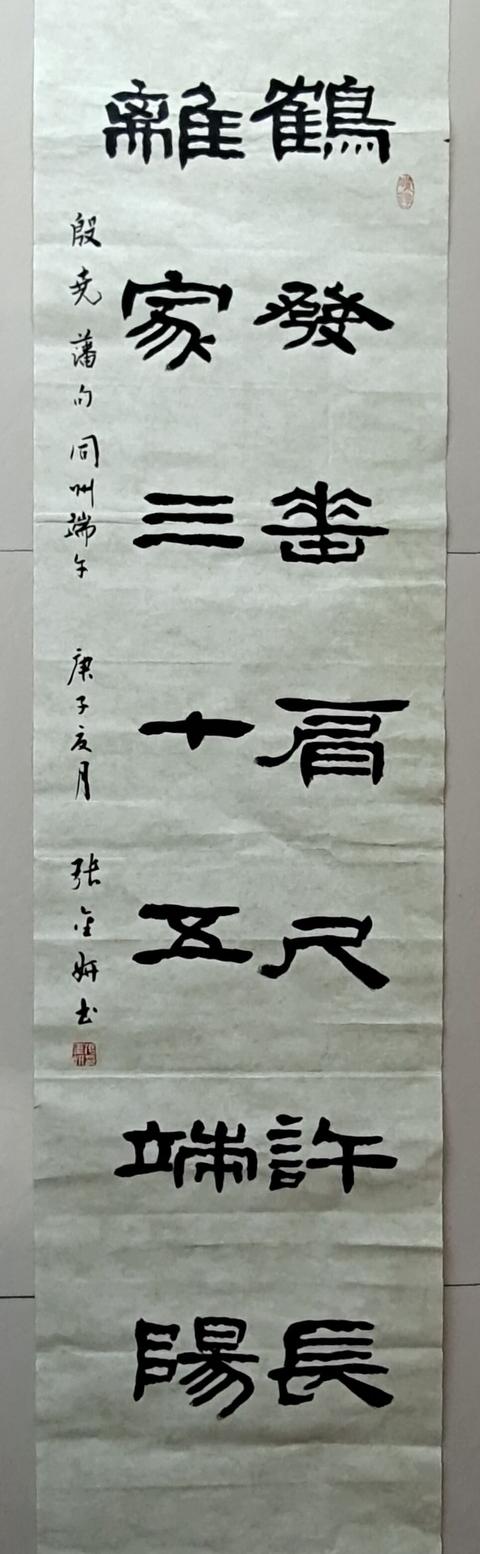 鶴發垂肩尺許長
離家三十五端陽
殷尧藩句 同州端午 庚子亥月 张金妍书